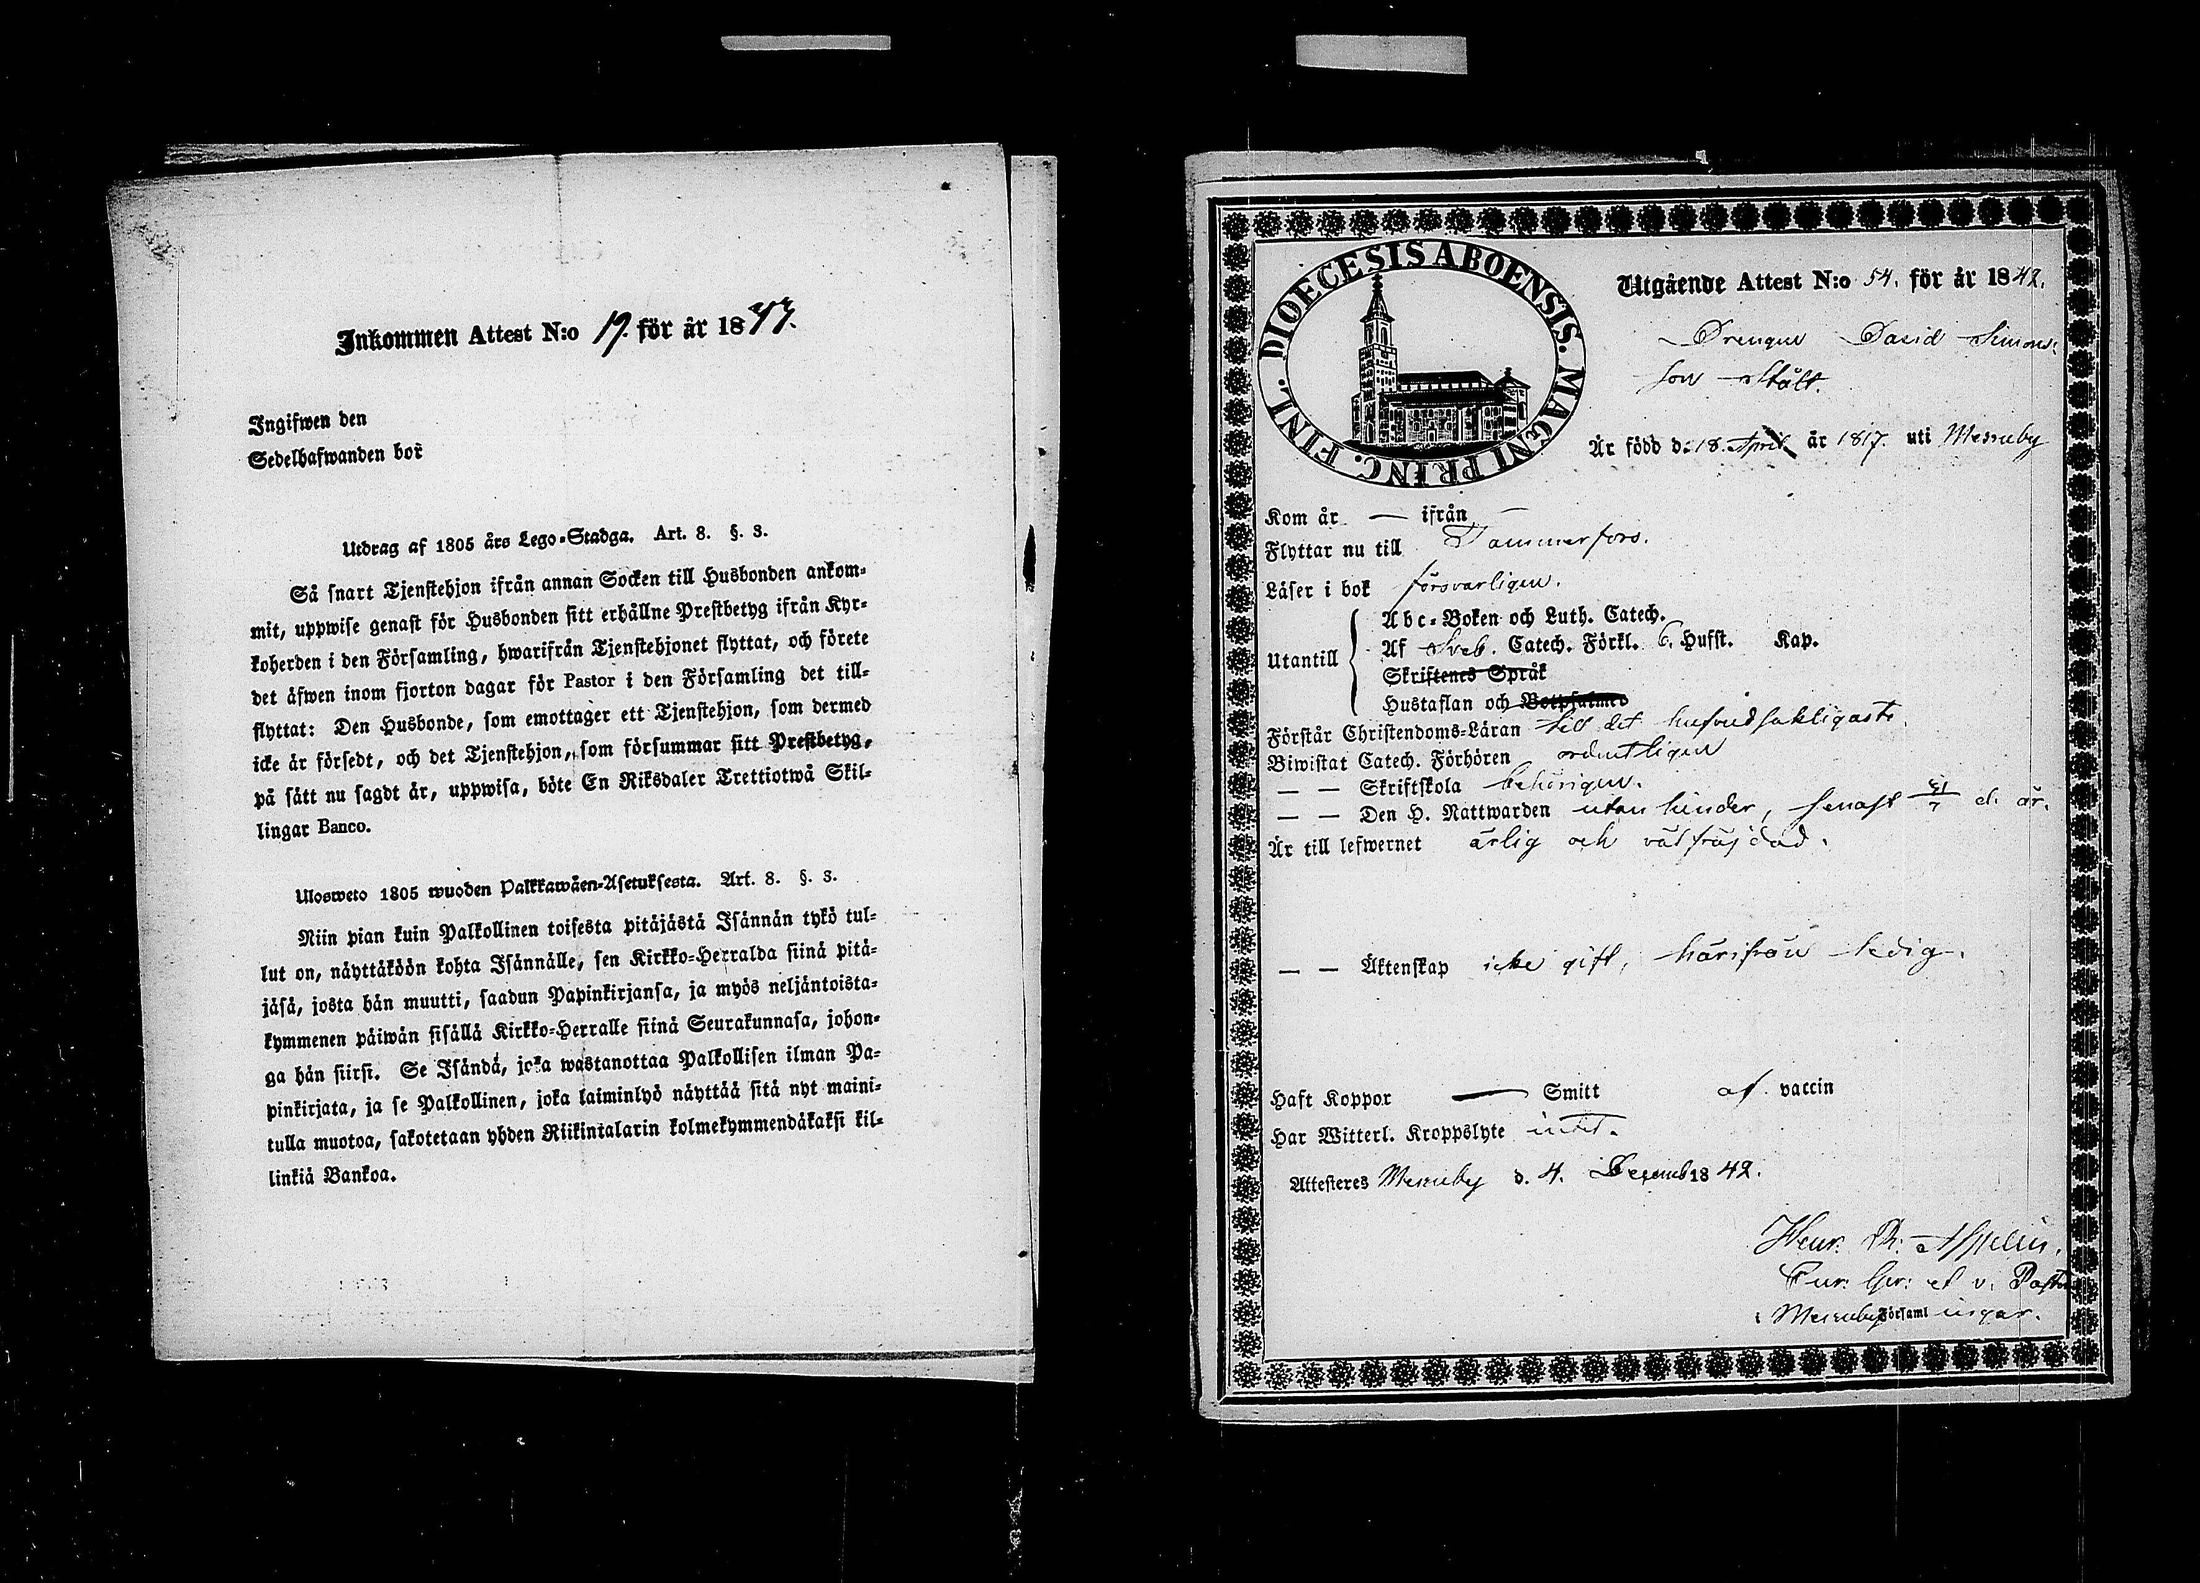 Inkommen Attest N:o 19. för år 1843.
Ingifwen den
Sedelhafwanden bor
Utdrag af 1805 års Lego-Stadga. Art. 8. §. 3.
Så snart Tjenstehjon ifrån annan Socken till Husbonden ankom-
mit, uppwise genast för Husbonden sitt erhållne Prestbetyg ifrån Kyr-
koherden i den Församling, hwarifrån Tjenstehjonet flyttat, och förete
det äfwen inom fjorton dagar för Pastor i den Församling det till-
flyttat: Den Husbonde, som emottager ett Tjenstehjon, som dermed
icke är försedt, och det Tjenstehjon, som försummar sitt Prestbetyg,
på sätt nu sagdt är, uppwisa, böte En Riksdaler Trettiotwå Skil-
lingar Banco.
Ulosweto 1805 wuoden Palkkawäen-Asetuksesta. Art. 8. §. 3.
Niin pian kuin Palkollinen toisesta pitäjästä Isännän tykö tul-
lut on, näyttäköön kohta Isännälle, sen Kirkko-Herralda siinä pitä-
jäsä, josta hän muutti, saadun Papinkirjansa, ja myös neljäntoista-
kymmenen päiwän sisällä Kirkko-Herralle siinä Seurakunnasa, johon-
ga hän siirsi. Se Isändä, joka wastanottaa Palkollisen ilman Pa-
pinkirjata, ja se Palkollinen, joka laiminlyö näyttää sitä nyt maini-
tulla muotoa, sakotetaan yhden Riikintalarin kolmekymmendäkaksi kil-
linkiä Bankoa.
DIOECESIS ABOENSIS. MAGNI PRINC. FINL.
Utgående Attest N:o 54. för år 1842.
Drengen David Simons-
son Stålt.
Är född d. 18. April år 1817. uti Messuby
Kom år — ifrån —
Flyttar nu till Tammerfors.
Läser i bok försvarligen.
Utantill
Abc-Boken och Luth. Catech.
Af Sveb. Catech. Förkl. 6. Hufst. Kap.
Skriftenes Språk
Hustaflan och Botpsalmer
Förstår Christendoms-Läran till det hufvudsakligaste.
Biwistat Catech. Förhören ordentligen
— — Skriftskola behörigen.
— — Den H. Nattwarden utan hinder, senast d. år.
Är till lefwernet ärlig och välfräjdad.
— — Äktenskap icke gift, härifrån ledig.
Haft Koppor — Smitt af vaccin
Har Witterl. Kroppslyte intet.
Attesteres Messuby d. 4. Decemb 1842.
Henr. Appelin.
v. Pastor
i Messuby Församl ingar.